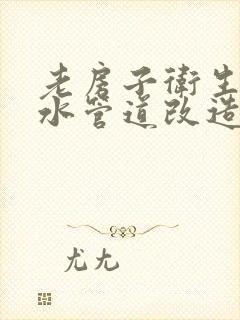 老房子衛生
水管道改造
尤尤